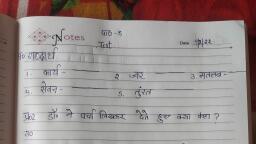 Notes पाठ-5
Test Date /22
प्र० शब्दार्थ
1. कार्य- 2. ज्वर 3. मतलब-
4. 5. तुरंत
प्र2 डॉ० ने पर्चा लिखकर देते हुए क्या कहा?
उ०